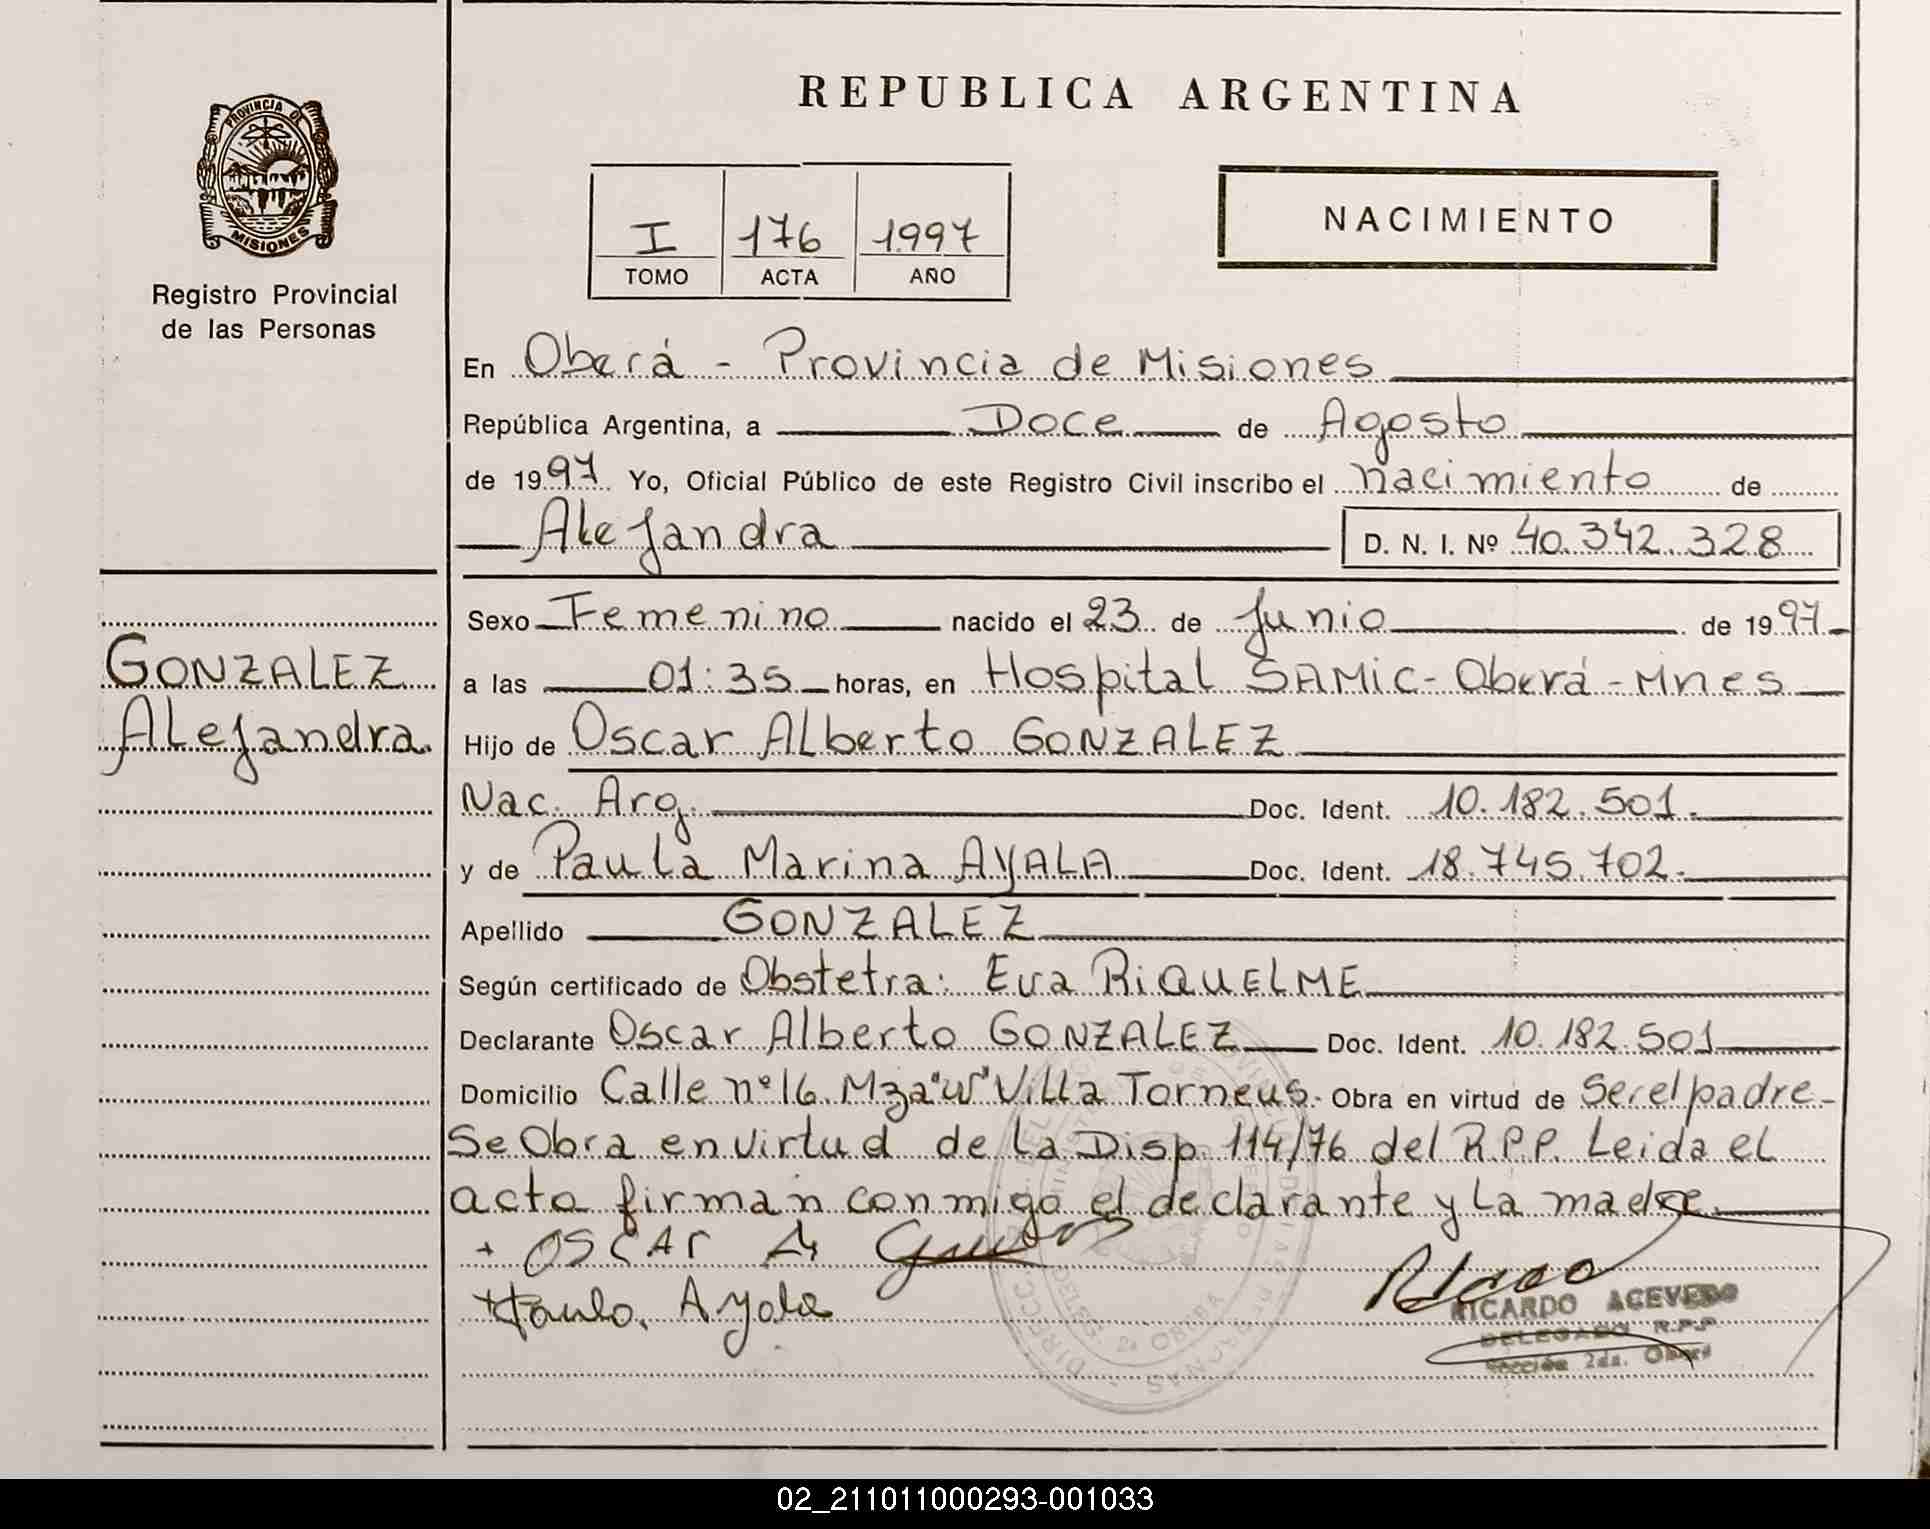 REPUBLICA ARGENTINA
PROVINCIA DE
MISIONES
Registro Provincial
de las Personas
I 176 1997
TOMO ACTA AÑO
NACIMIENTO
En Oberá - Provincia de Misiones
República Argentina, a Doce de Agosto
de 1997 Yo, Oficial Público de este Registro Civil inscribo el nacimiento de
Alejandra D. N. I. Nº 40.342.328
Sexo Femenino nacido el 23 de Junio de 1997
GONZALEZ
Alejandra.
a las 01:35 horas, en Hospital SAMIC - Oberá - Mnes
Hijo de Oscar Alberto GONZALEZ
Nac. Arg. Doc. Ident. 10.182.501.
y de Paula Marina AYALA Doc. Ident. 18.745.702.
Apellido GONZALEZ
Según certificado de Obstetra: Eva RIQUELME
Declarante Oscar Alberto GONZALEZ Doc. Ident. 10.182.501
Domicilio Calle nº 16. Mza "W" Villa Torneus. Obra en virtud de Ser el padre-
Se Obra en virtud de la Disp. 114/76 del R.P.P. Leida el
acto firman conmigo el declarante y la madre.
+ OSCAR A
+ Paula. Ayala
RICARDO ACEVEDO
DELEGADO R.P.P
Sección 2da. Oberá
02_211011000293-001033